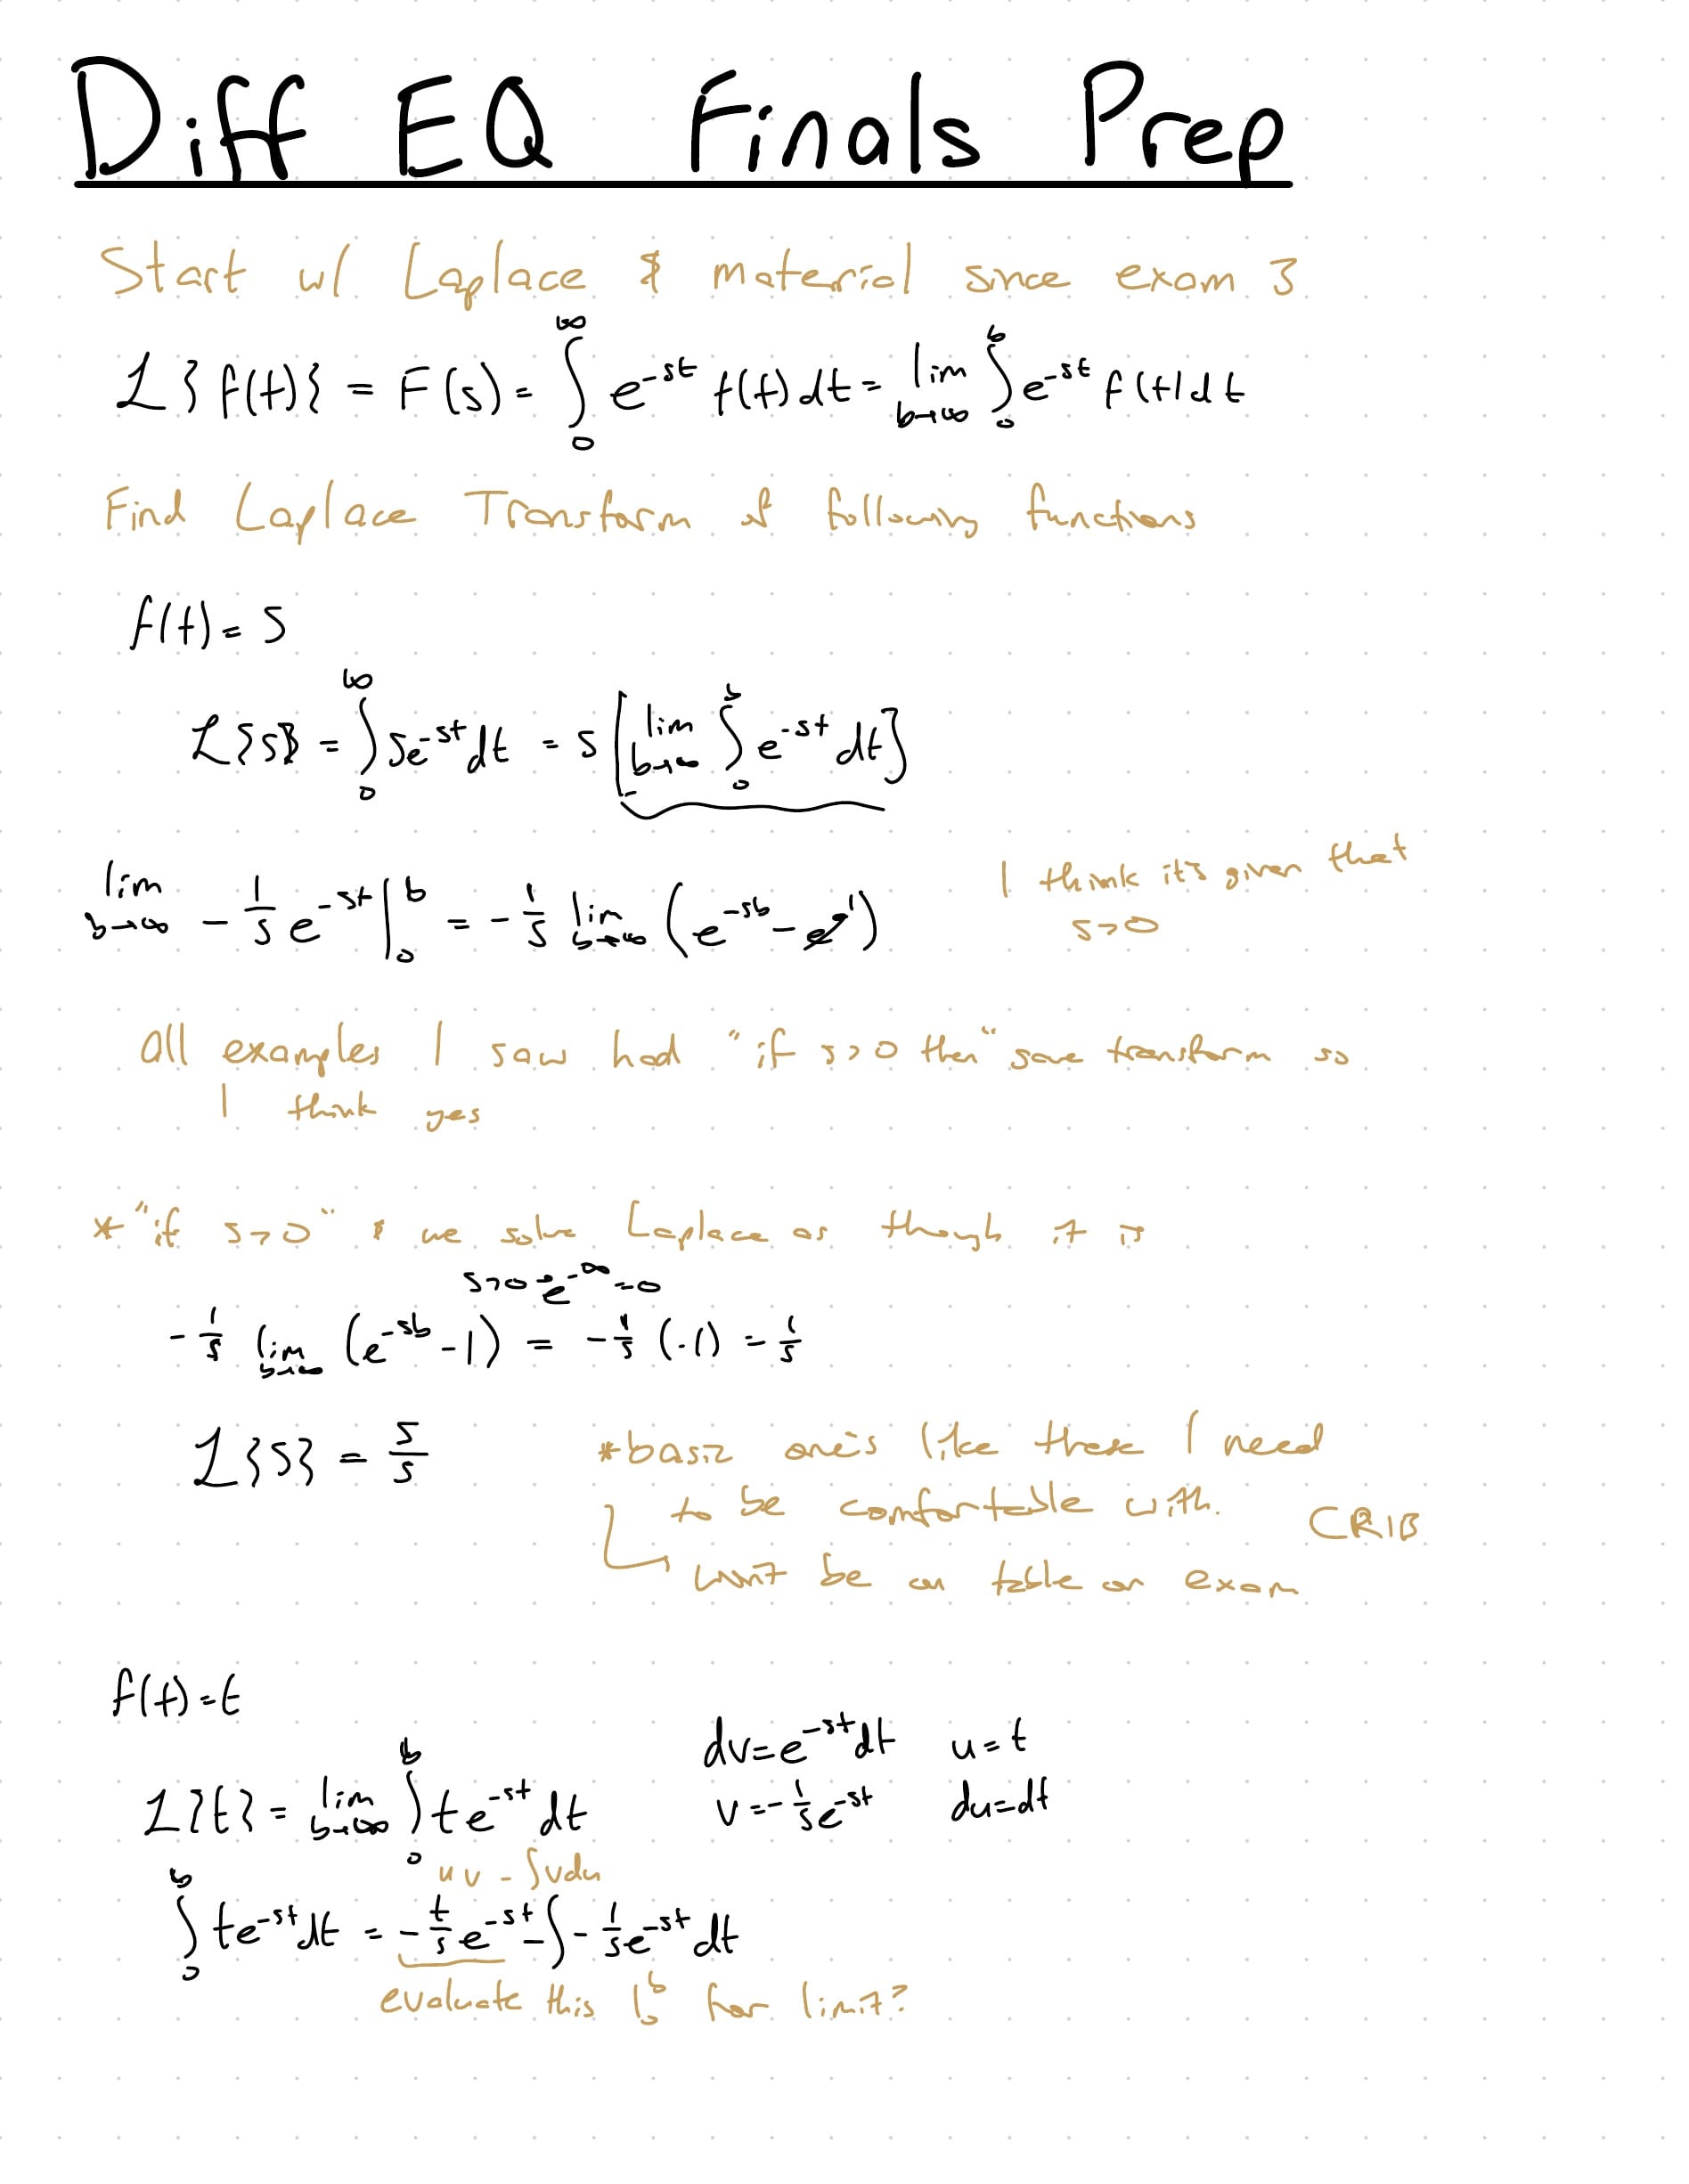 Diff EQ Finals Prep
Start w/ Laplace & material since exam 3
ℒ{f(t)} = F(s) = ∫₀^∞ e^{-st} f(t)dt = lim_{b→∞} ∫₀^b e^{-st} f(t)dt
Find Laplace Transform of following functions
f(t) = 5
ℒ{5} = ∫₀^∞ 5e^{-st}dt = 5[lim_{b→∞} ∫₀^b e^{-st} dt]
lim_{b→∞} -1/s e^{-st}|₀^b = -1/s lim_{b→∞} (e^{-sb} - 1)
I think it's given that
s>0
all examples I saw had "if s>0 then" gave transform so
I think yes
* "if s>0" & we solve Laplace as though it is
s>0 = e^{-∞} = 0
-1/s lim_{b→∞} (e^{-sb} - 1) = -1/s (-1) = 1/s
ℒ{5} = 5/s
*basic one's like these I need
to be comfortable with.
CRIB
won't be on table on exam
f(t) = t
ℒ{t} = lim_{b→∞} ∫₀^b te^{-st} dt
dv = e^{-st}dt u = t
v = -1/s e^{-st} du = dt
uv - ∫vdu
∫₀^b te^{-st}dt = -t/s e^{-st} - ∫ -1/s e^{-st} dt
evaluate this |₀^b for limit?